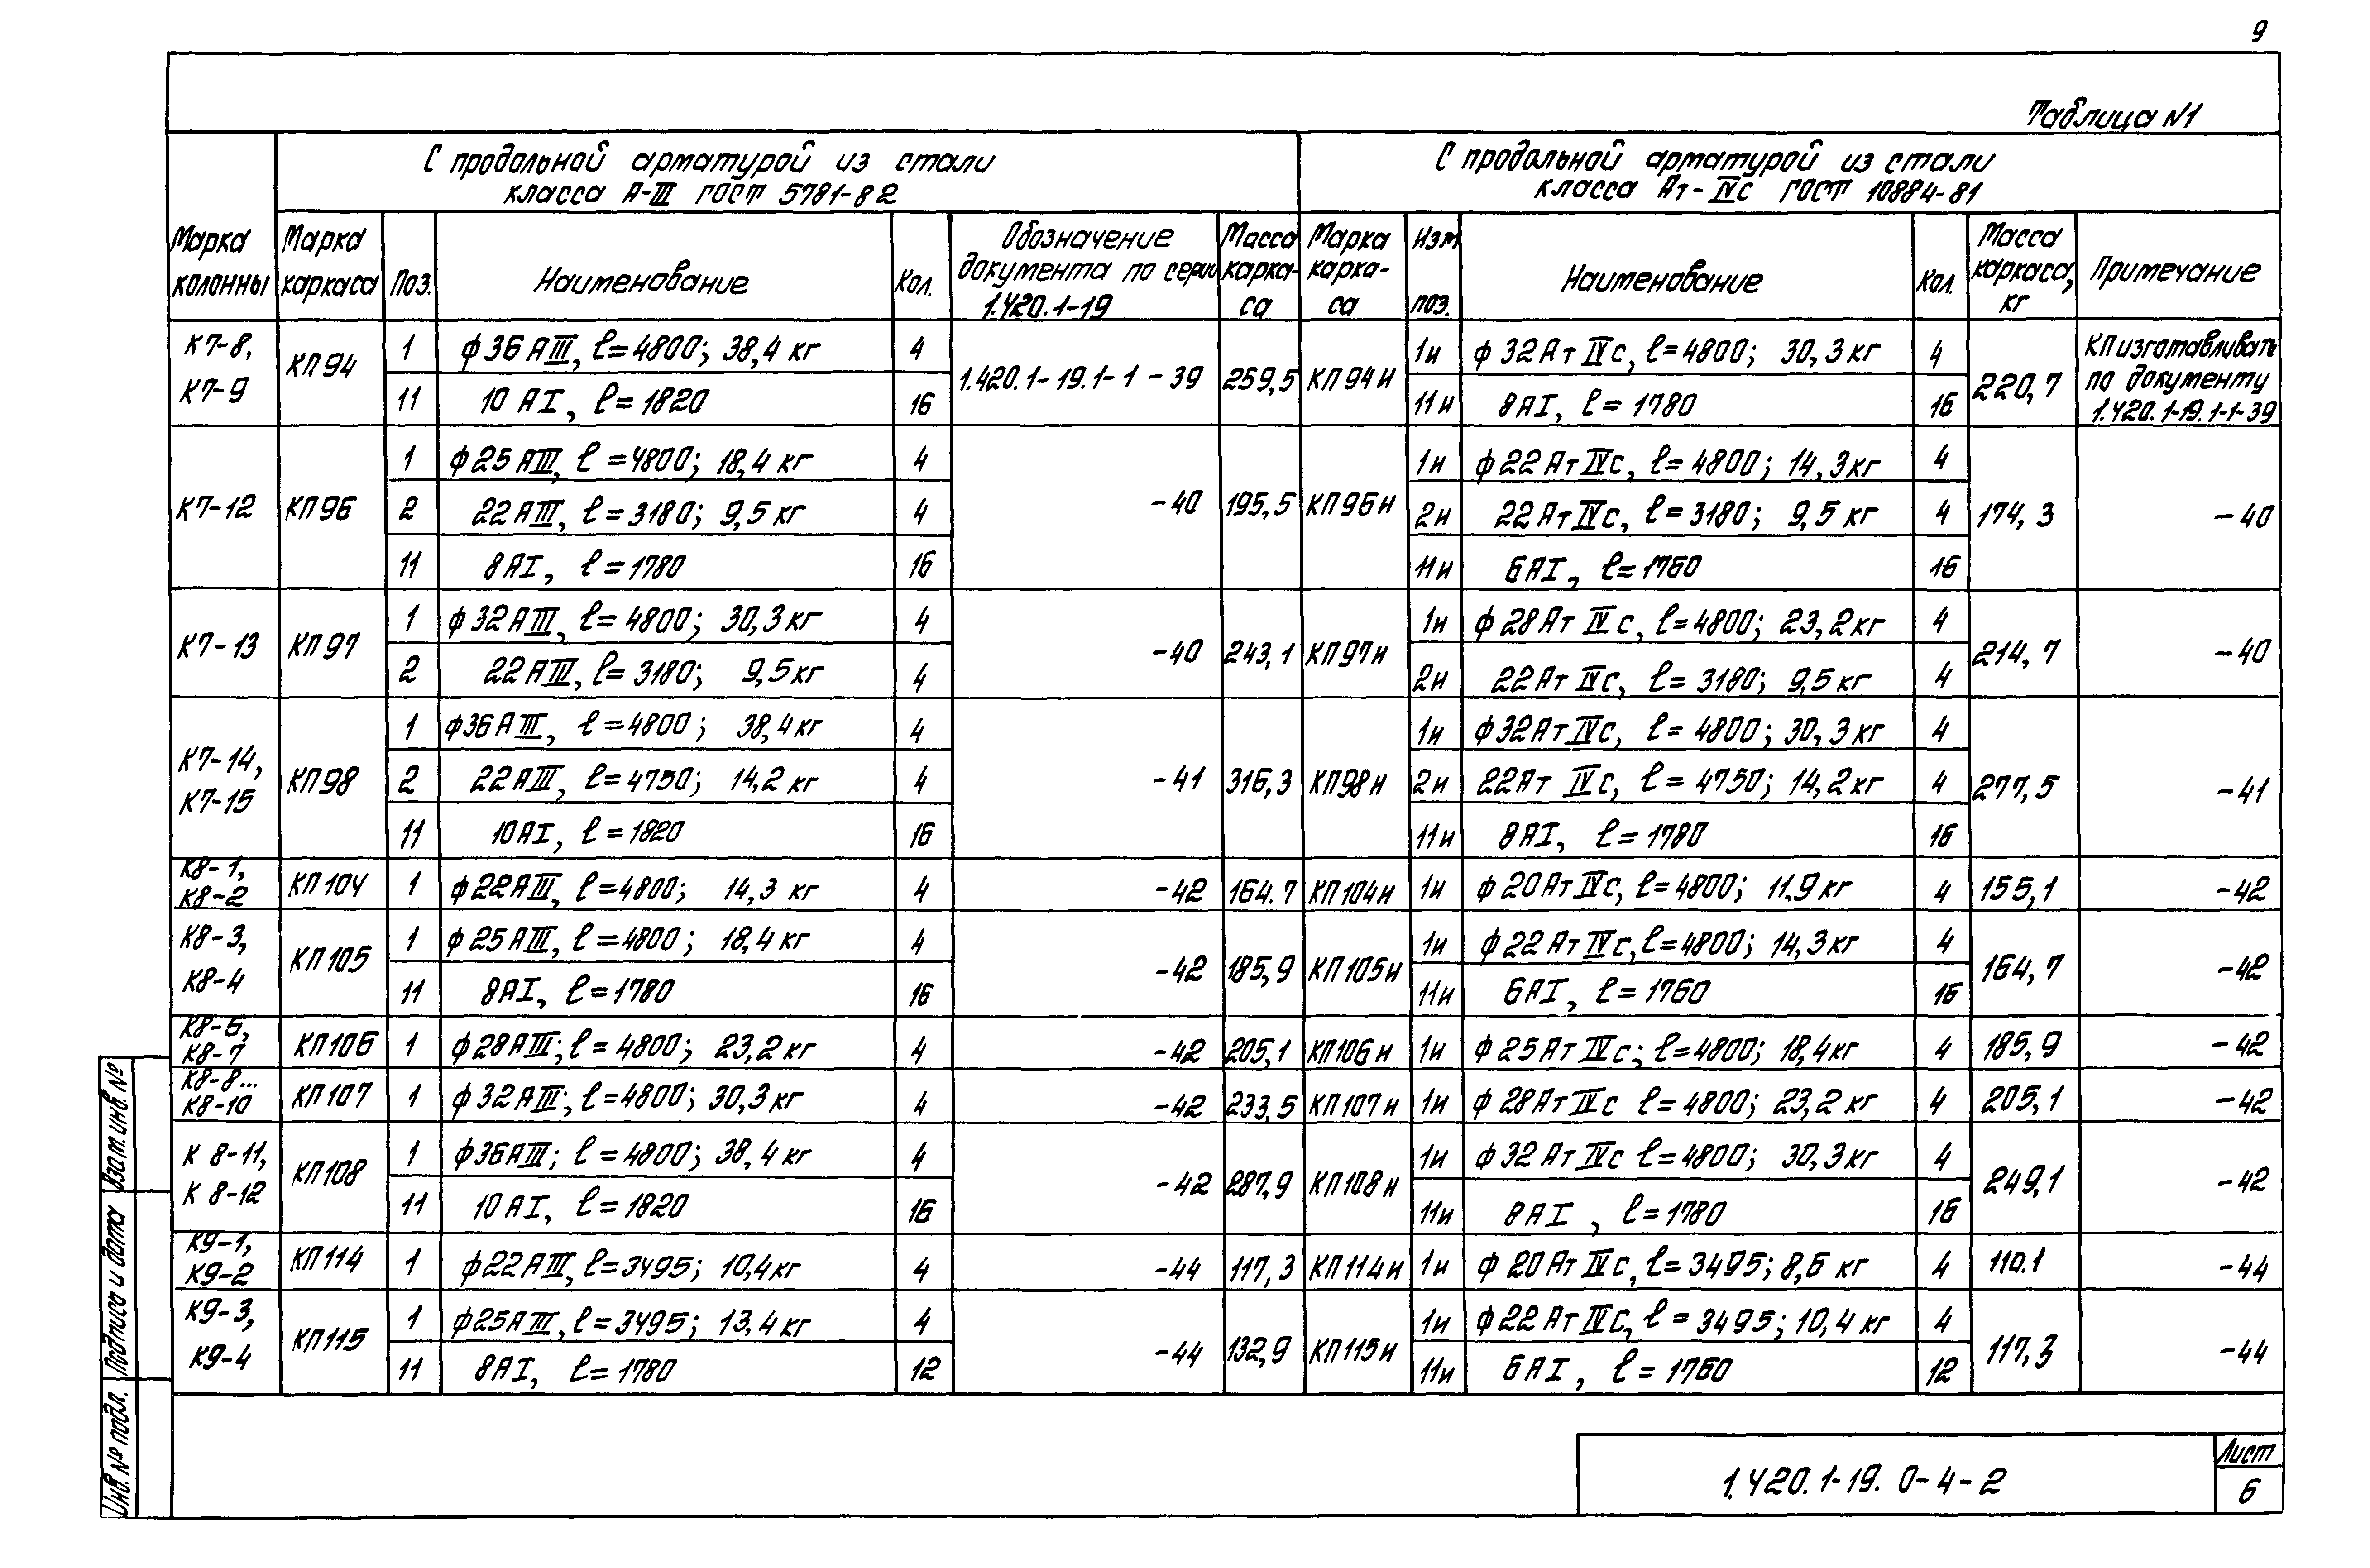 9
Таблица N1
С продольной арматурой из стали
класса А-III ГОСТ 5781-82
С продольной арматурой из стали
класса Ат-IVС ГОСТ 10884-81
Марка колонны
Марка каркаса
Поз.
Наименование
Кол.
Обозначение документа по серии 1.420.1-19
Масса каркаса
Марка каркаса
Изм. поз.
Наименование
Кол.
Масса каркаса, кг
Примечание
К7-8, К7-9 КП94 1 ф36АIII, ℓ=4800; 38,4 кг 4 1.420.1-19.1-1-39 259,5 КП94и 1и ф32АтIVС, ℓ=4800; 30,3 кг 4 220,7 КП изготавливать по документу 1.420.1-19.1-1-39
11 10АI, ℓ=1820 16 11и 8АI, ℓ=1780 16
К7-12 КП96 1 ф25АIII, ℓ=4800; 18,4 кг 4 -40 195,5 КП96и 1и ф22АтIVС, ℓ=4800; 14,3кг 4 174,3 -40
2 22АIII, ℓ=3180; 9,5 кг 4 2и 22АтIVС, ℓ=3180; 9,5 кг 4
11 8АI, ℓ=1780 16 11и 6АI, ℓ=1760 16
К7-13 КП97 1 ф32АIII, ℓ=4800; 30,3кг 4 -40 243,1 КП97и 1и ф28АтIVС, ℓ=4800; 23,2кг 4 214,7 -40
2 22АIII, ℓ=3180; 9,5кг 4 2и 22АтIVС, ℓ=3180; 9,5кг 4
К7-14, К7-15 КП98 1 ф36АIII, ℓ=4800; 38,4кг 4 -41 316,3 КП98и 1и ф32АтIVС, ℓ=4800; 30,3кг 4 277,5 -41
2 22АIII, ℓ=4750; 14,2 кг 4 2и 22АтIVС, ℓ=4750; 14,2кг 4
11 10АI, ℓ=1820 16 11и 8АI, ℓ=1780 16
К8-1, К8-2 КП104 1 ф22АIII, ℓ=4800; 14,3 кг 4 -42 164.7 КП104и 1и ф20АтIVС, ℓ=4800; 11.9кг 4 155,1 -42
К8-3, К8-4 КП105 1 ф25АIII, ℓ=4800; 18,4кг 4 -42 185,9 КП105и 1и ф22АтIVС, ℓ=4800; 14,3кг 4 164,7 -42
11 8АI, ℓ=1780 16 11и 6АI, ℓ=1760 16
К8-6, К8-7 КП106 1 ф28АIII; ℓ=4800; 23,2кг 4 -42 205,1 КП106и 1и ф25АтIVС; ℓ=4800; 18,4кг 4 185,9 -42
К8-8... К8-10 КП107 1 ф32АIII; ℓ=4800; 30,3кг 4 -42 233,5 КП107и 1и ф28АтIVС ℓ=4800; 23,2кг 4 205,1 -42
К 8-11, К 8-12 КП108 1 ф36АIII; ℓ=4800; 38,4кг 4 -42 287,9 КП108и 1и ф32АтIVС ℓ=4800; 30,3кг 4 249,1 -42
11 10АI, ℓ=1820 16 11и 8АI, ℓ=1780 16
К9-1, К9-2 КП114 1 ф22АIII, ℓ=3495; 10,4кг 4 -44 117,3 КП114и 1и ф20АтIVС, ℓ=3495; 8,6 кг 4 110.1 -44
К9-3, К9-4 КП115 1 ф25АIII, ℓ=3495; 13,4кг 4 -44 132,9 КП115и 1и ф22АтIVС, ℓ=3495; 10,4 кг 4 117,3 -44
11 8АI, ℓ=1780 12 11и 6АI, ℓ=1760 12
Взам. инв. №
Подпись и дата
Инв. № подл.
1.420.1-19. 0-4-2
Лист
6